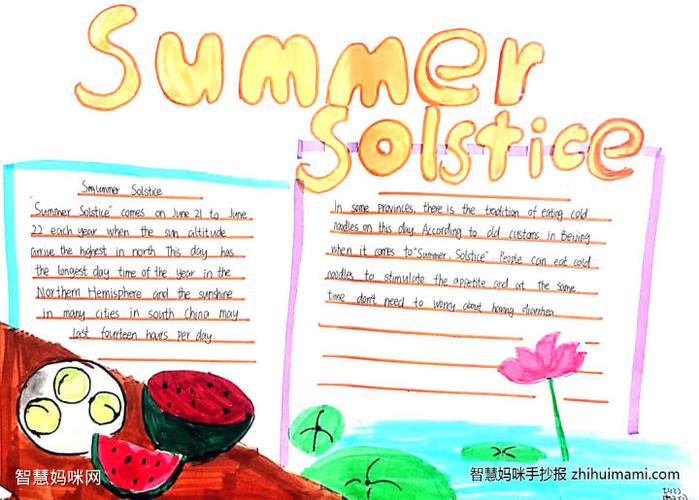 Summer
Solstice
Smummer Solstice
"Summer Solstice" comes on June 21 to June
22 each year when the sun altitude
arrive the highest in north This day has
the longest day time of the year in the
Northern Hemisphere and the sunshine
in many cities in south China may
last fourteen hours per day.
In some provinces, there is the tradition of eating cold
noodles on this day. According to old customs in Beijing
when it comes to "Summer, Solstice". People can eat cold
noodles to stimulate the appetite and at the same
time don't need to worry about having diarrhea
智慧妈咪网
智慧妈咪手抄报 zhihuimami.com